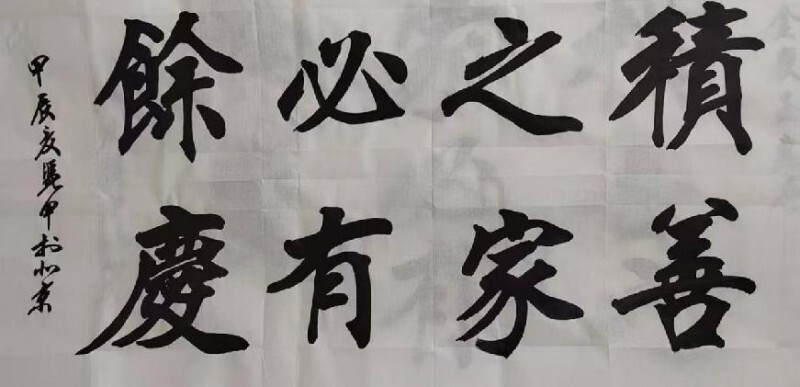 積善
之家
必有
餘慶
甲辰夏甲於北京